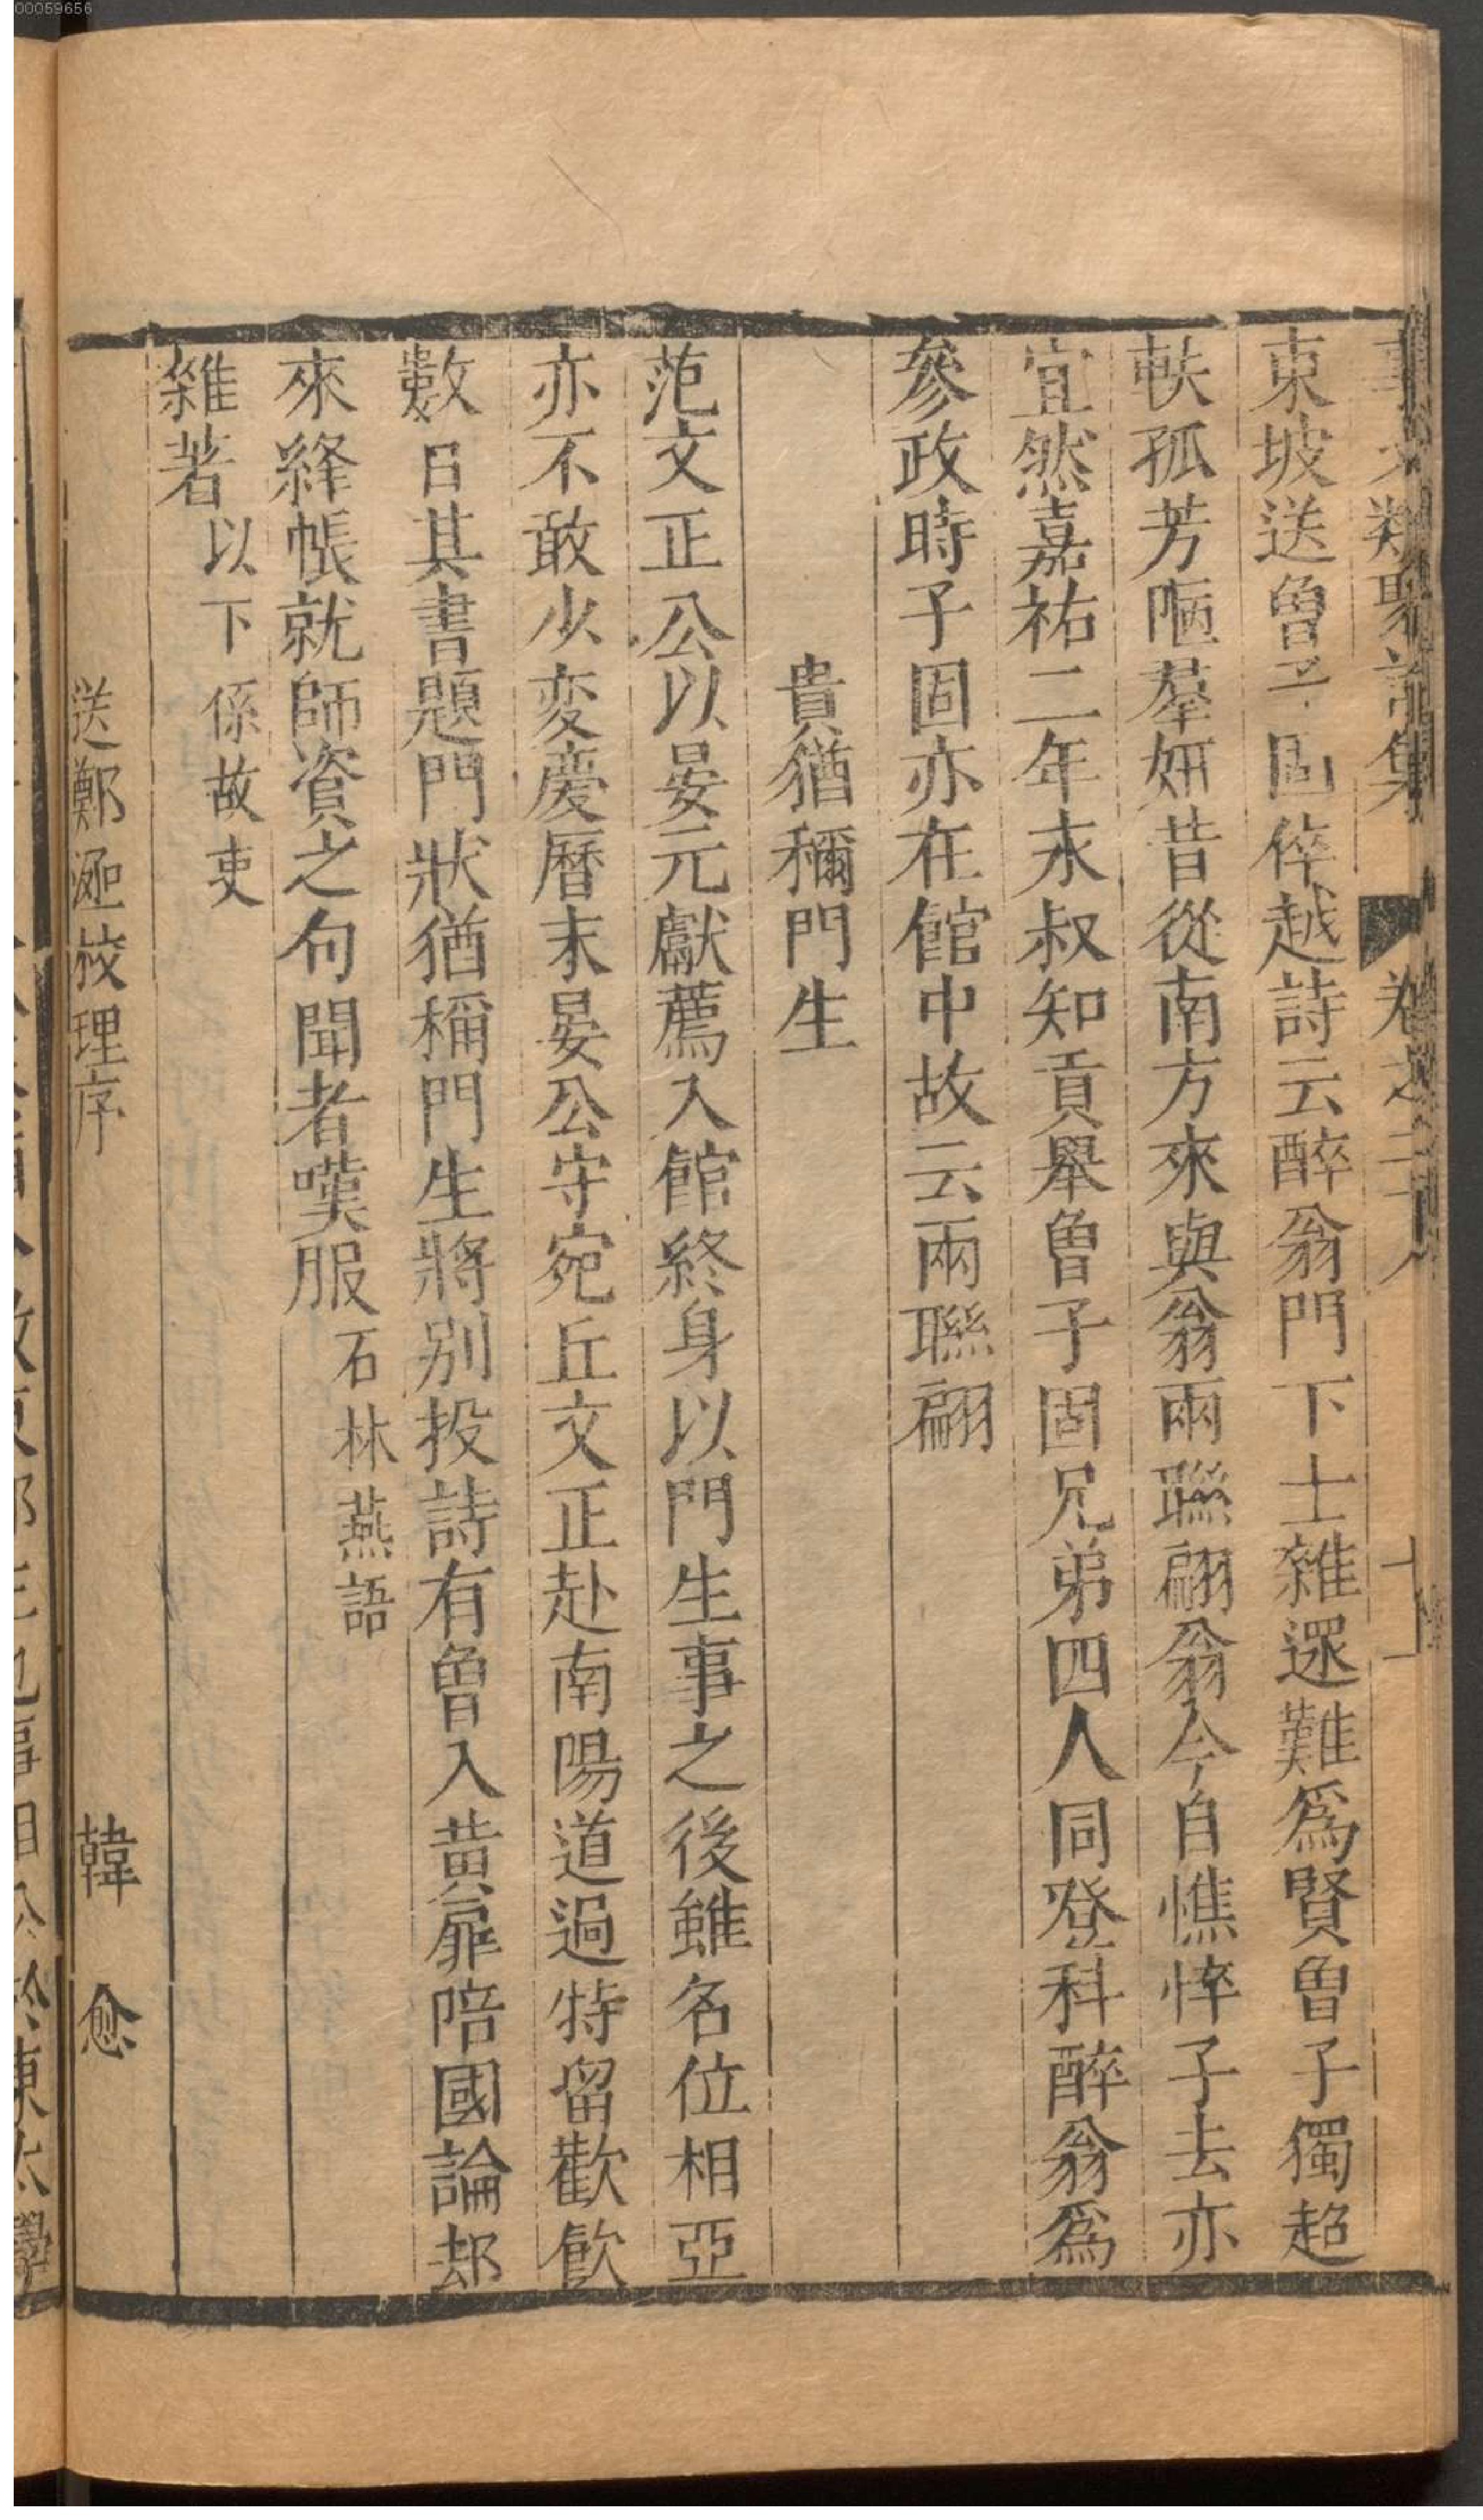 00059656
東坡送曽子固倅越詩云醉翁門下士雜遝難爲賢曽子獨超
軼孤芳陋羣姸昔從南方來與翁兩聮翩翁今自憔悴子去亦
宜然嘉祐二年永叔知貢舉曽子固兄弟四人同登科醉翁爲
參政時子固亦在館中故云兩聮翩
貴猶稱門生
范文正公以晏元獻薦入館終身以門生事之後雖名位相亞
亦不敢少変慶曆末晏公守宛丘文正赴南陽道過特留歡飲
數日其書題門狀猶稱門生將别投詩有曽入黄扉陪國論却
來絳帳就師資之句聞者嘆服石林燕語
雜著以下係故吏
送鄭涵校理序 韓愈